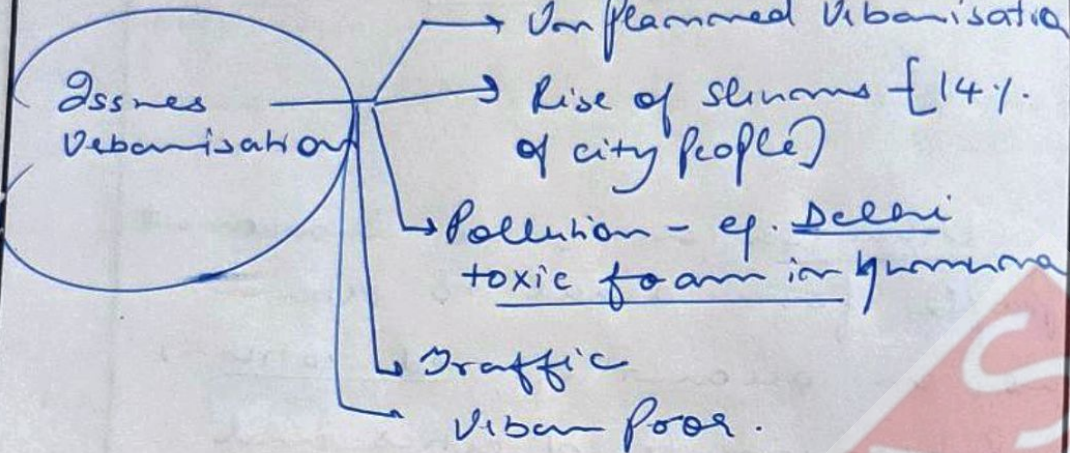 Issues
Urbanisation
→ Unplanned Urbanisatio
→ Rise of slums - [14%.
of city people]
→ Pollution - eg. Delhi
toxic foam in Yamuna
→ Traffic
Urban Poor.